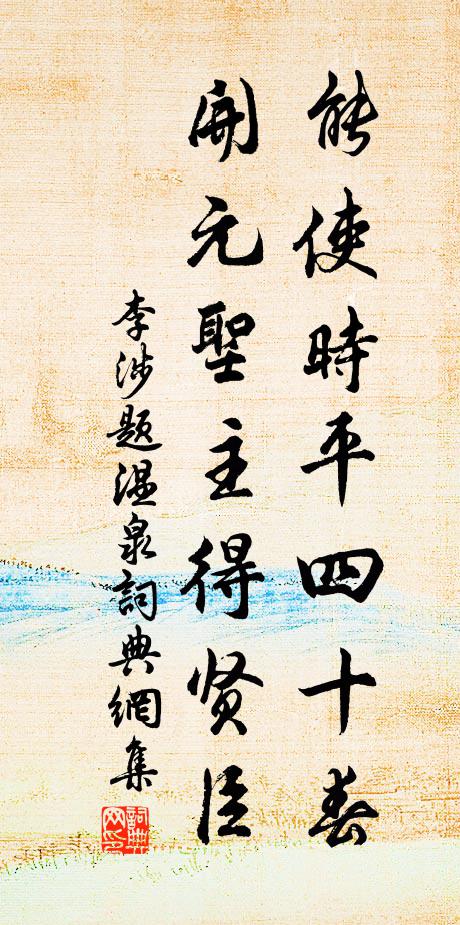 能使時平四十春
開元聖主得贤臣
李涉題溫泉詞典網集
詞典
网印